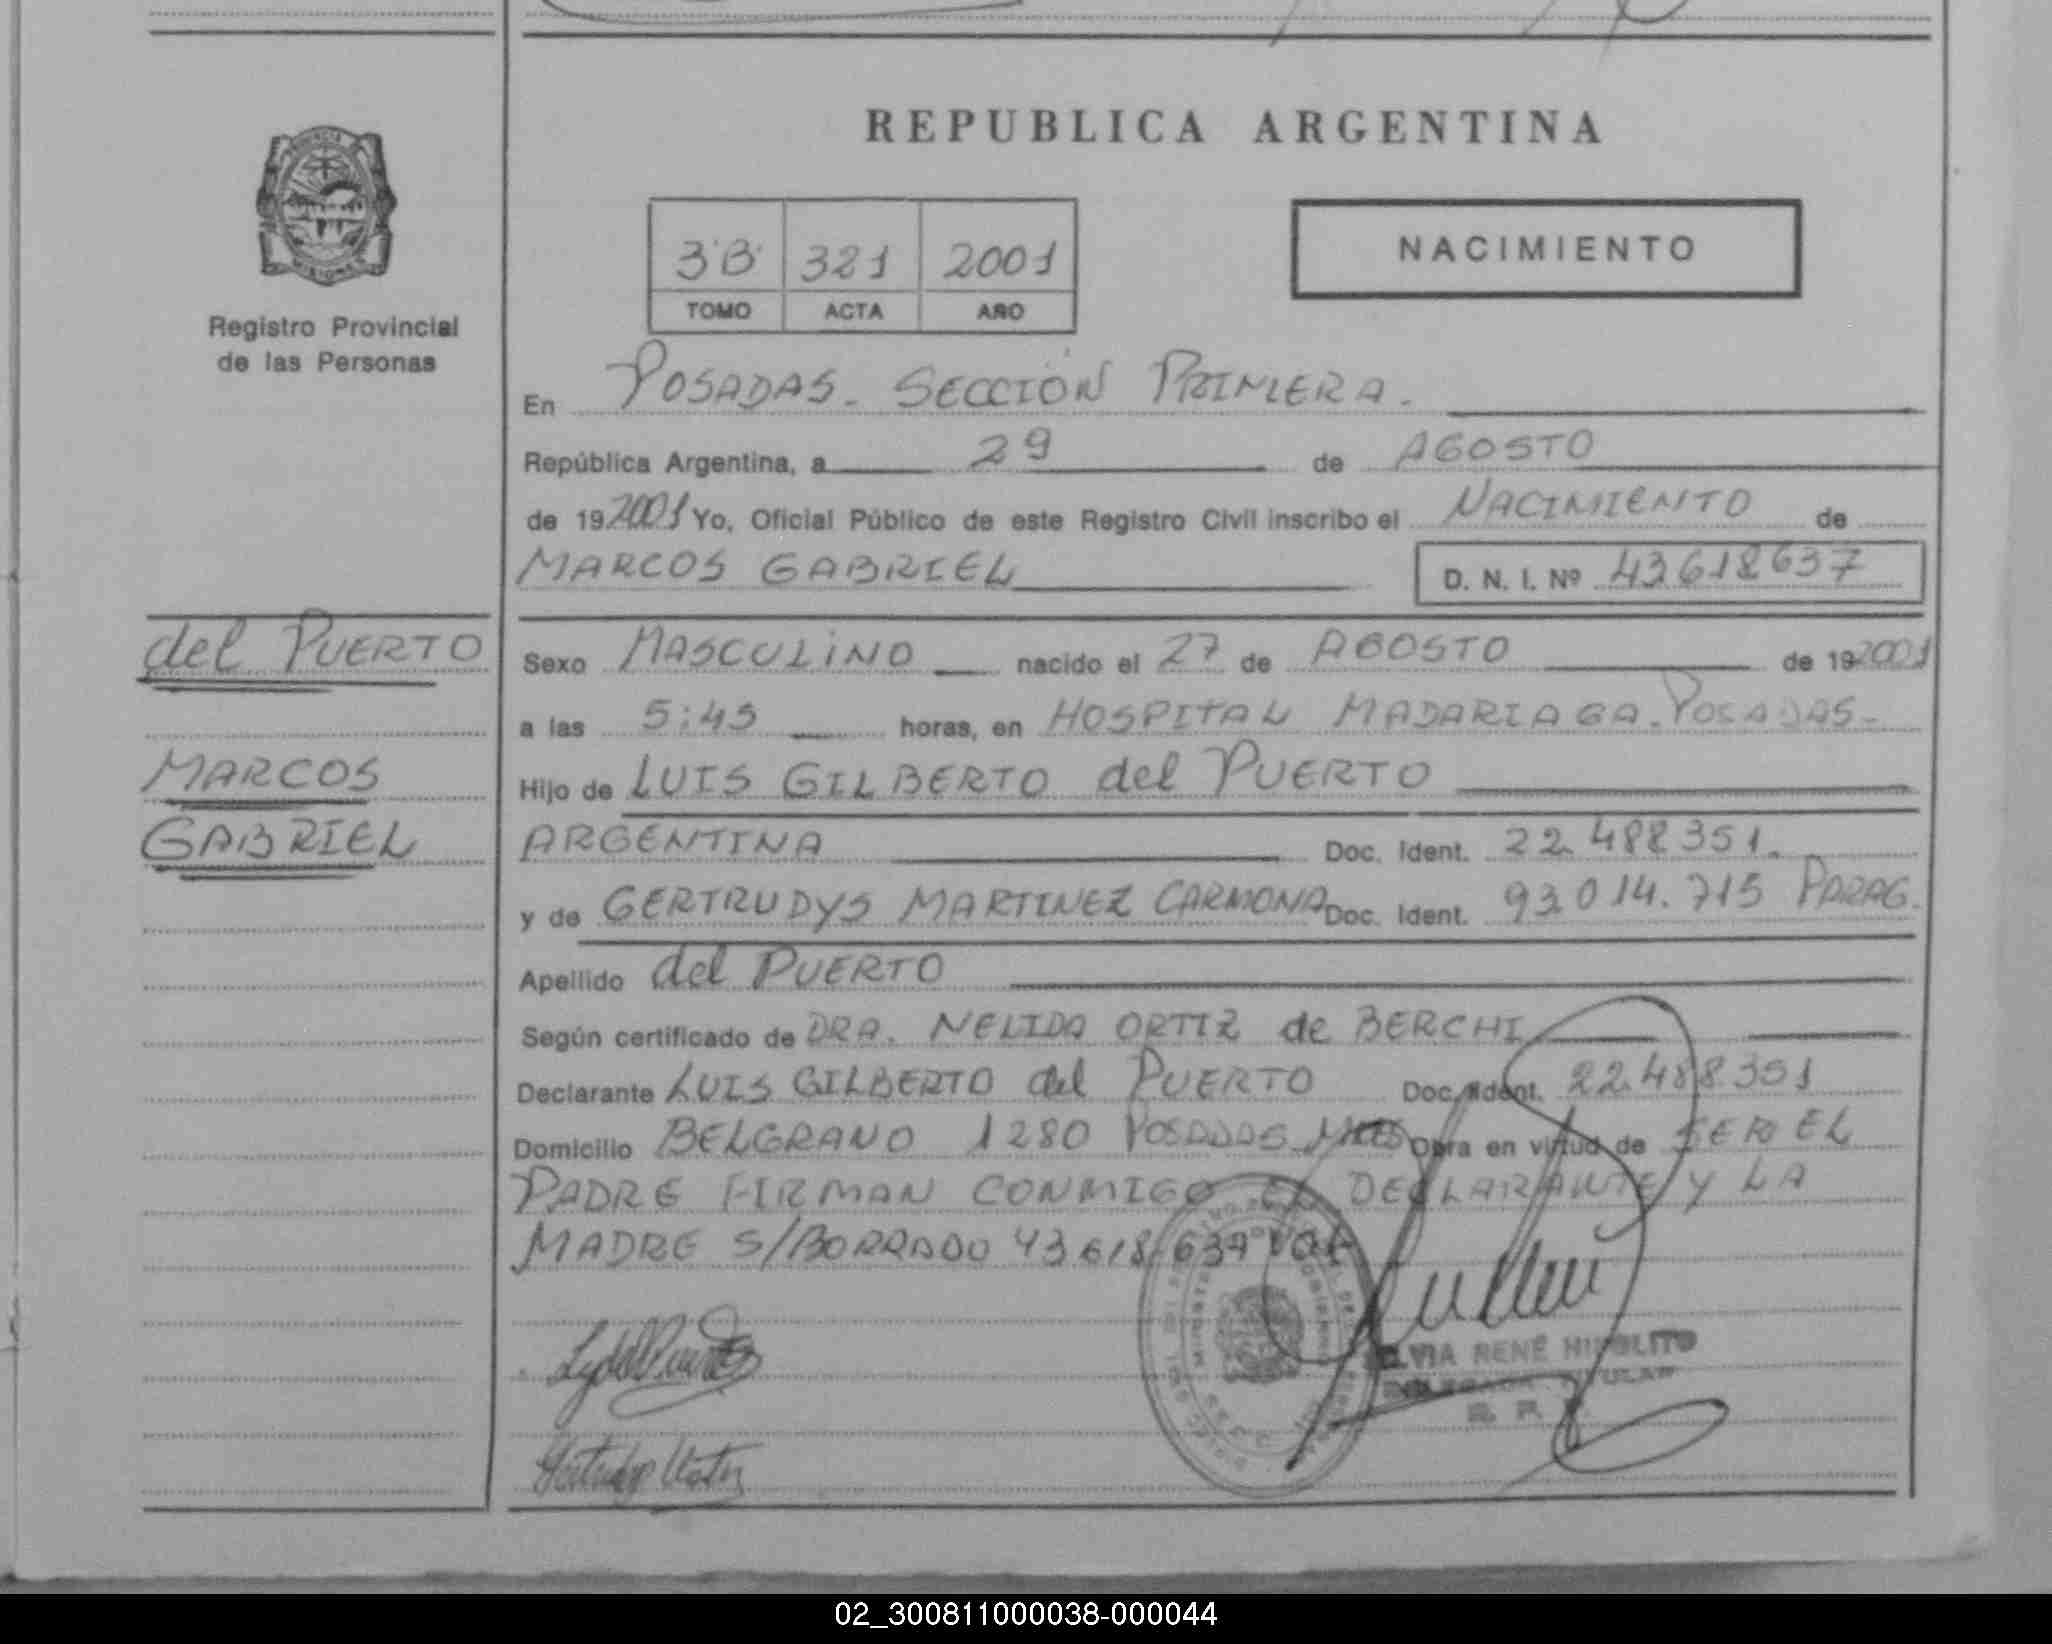 REPUBLICA ARGENTINA
PROVINCIA
MISIONES
Registro Provincial
de las Personas
3'B' 321 2001
TOMO ACTA AÑO
NACIMIENTO
En POSADAS. SECCIÓN PRIMERA.
República Argentina, a 29 de AGOSTO
de 19 2001 Yo, Oficial Público de este Registro Civil inscribo el NACIMIENTO de
MARCOS GABRIEL D. N. I. Nº 43618637
del PUERTO
MARCOS
GABRIEL
Sexo MASCULINO nacido el 27 de AGOSTO de 19 2001
a las 5:45 horas, en HOSPITAL MADARIAGA. POSADAS-
Hijo de LUIS GILBERTO del PUERTO
ARGENTINA Doc. Ident. 22.488351.
y de GERTRUDYS MARTINEZ CARMONA Doc. Ident. 93.014.715 PARAG.
Apellido del PUERTO
Según certificado de DRA. NELIDA ORTIZ de BERCHI
Declarante LUIS GILBERTO del PUERTO Doc. Ident. 22.488351
Domicilio BELGRANO 1280 POSADAS Obra en virtud de SER EL
PADRE FIRMAN CONMIGO EL DECLARANTE Y LA
MADRE S/BORRADO 43618637 VALE
RENÉ HIPOLITO
TITULAR